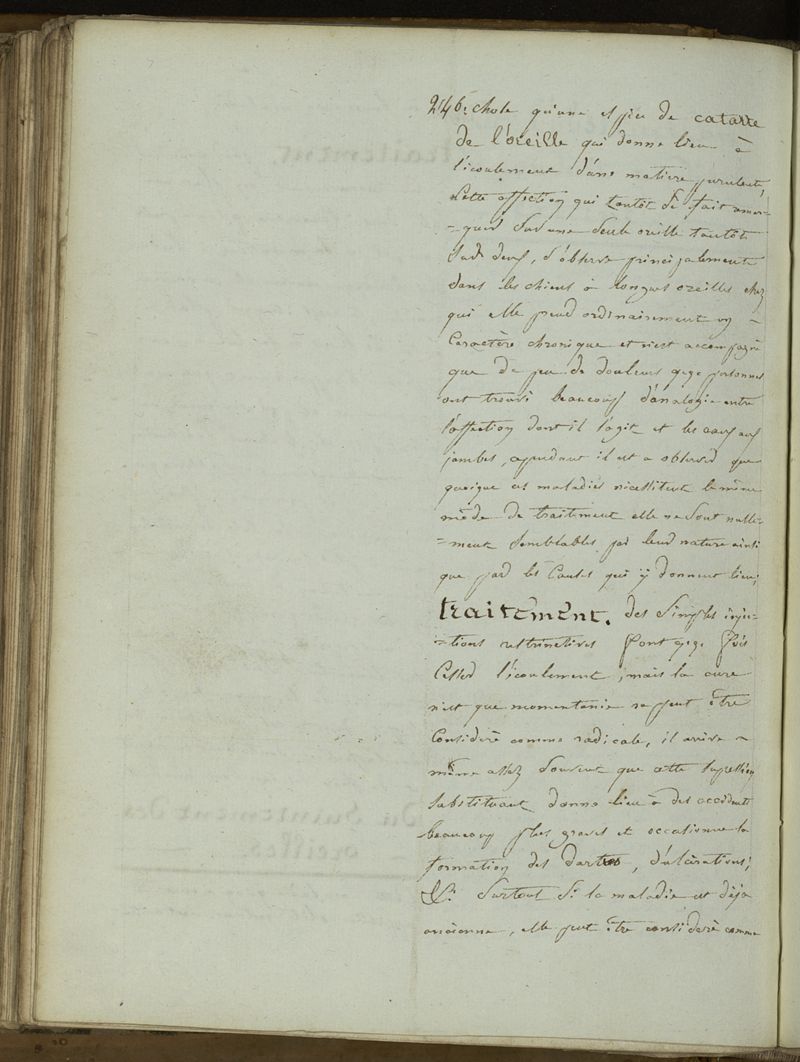 246. chose qu'une espèce de catarre
de l'oreille qui donne lieu à
l'écoulement d'une matière purulente,
cette affection qui tantôt se fait remar-
-quer sur une seule oreille tantôt
sur deux, s'observe principalement
dans les chiens à longues oreilles chez
qui elle prend ordinairement un -
Caractère chronique et n'est accompagné
que de peu de douleurs qqs personnes
ont trouvé beaucoup d'analogie entre
l'affection dont il s'agit et les eaux aux
jambes, cependant il est a observer que
quoique ces maladies nécessitent le même
mode de traitement elle ne sont nulle-
-ment semblables par leur nature ainsi
que par les Causes qui y donnent lieu;
traitement. des simples injec-
-tions restrinctives font qqs fois
Cesser l'écoulement, mais la cure
n'est que momentanée ne peut être
Considéré comme radicale, il arrive -
même assez souvent que cette supression
substituant donne lieu à des accidents
beaucoup plus graves et occasionne la
formation des dartres, d'ulcérations;
&c. surtout si la maladie est déja
ancienne, elle peut être considéré comme